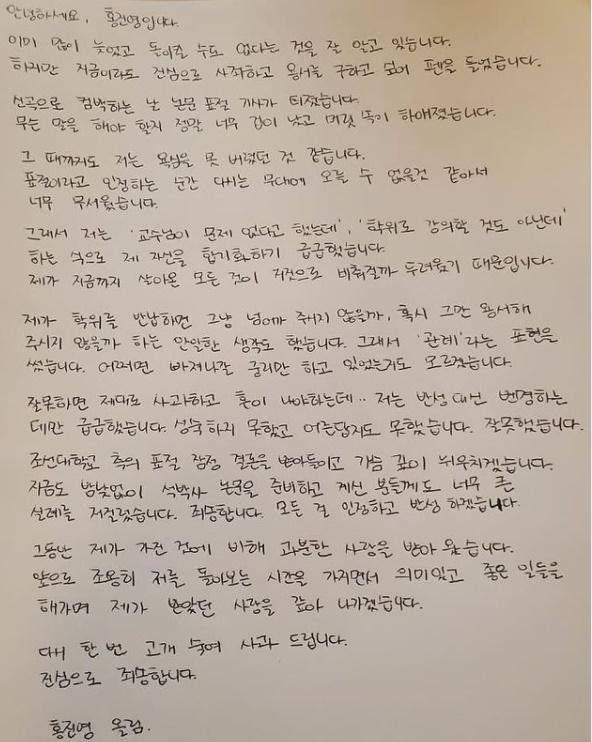 안녕하세요, 홍진영입니다.
이미 많이 늦었고 돌이킬 수도 없다는 것을 잘 알고 있습니다.
하지만 지금이라도 진심으로 사죄하고 용서를 구하고 싶어 펜을 들었습니다.
신곡으로 컴백하는 날 논문 표절 기사가 터졌습니다.
무슨 말을 해야 할지 정말 너무 겁이 났고 머릿 속이 하얘졌습니다.
그 때까지도 저는 욕심을 못 버렸던 것 같습니다.
표절이라고 인정하는 순간 다시는 무대에 오를 수 없을것 같아서
너무 무서웠습니다.
그래서 저는 '교수님이 문제 없다고 했는데', '학위로 강의할 것도 아닌데'
하는 식으로 제 자신을 합기화하기 급급했습니다.
제가 지금까지 살아온 모든 것이 거짓으로 비춰질까 두려웠기 때문입니다.
제가 학위를 반납하면 그냥 넘어가 주시지 않을까, 혹시 그만 용서해
주시지 않을까 하는 안일한 생각도 했습니다. 그래서 '관례'라는 표현을
썼습니다. 어쩌면 빠져나갈 궁리만 하고 있었는지도 모르겠습니다.
잘못하면 제대로 사과하고 혼이 나야하는데.. 저는 반성 대신 변명하는
데만 급급했습니다. 성숙하지 못했고 어른답지도 못했습니다. 잘못했습니다.
조선대학교 측의 표절 잠정 결론을 받아들이고 가슴 깊이 뉘우치겠습니다.
지금도 밤낮없이 석박사 논문을 준비하고 계신 분들께도 너무 큰
실례를 저질렀습니다. 죄송합니다. 모든 걸 인정하고 반성 하겠습니다.
그동안 제가 가진 것에 비해 과분한 사랑을 받아 왔습니다.
앞으로 조용히 저를 돌아보는 시간을 가지면서 의미있고 좋은 일들을
해가며 제가 받았던 사랑을 갚아 나가겠습니다.
다시 한 번 고개 숙여 사과 드립니다.
진심으로 죄송합니다.
홍진영 올림.